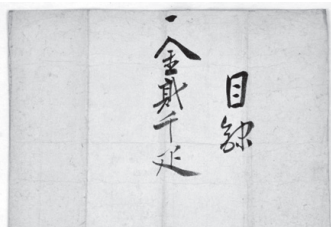 目録
一金弐千疋